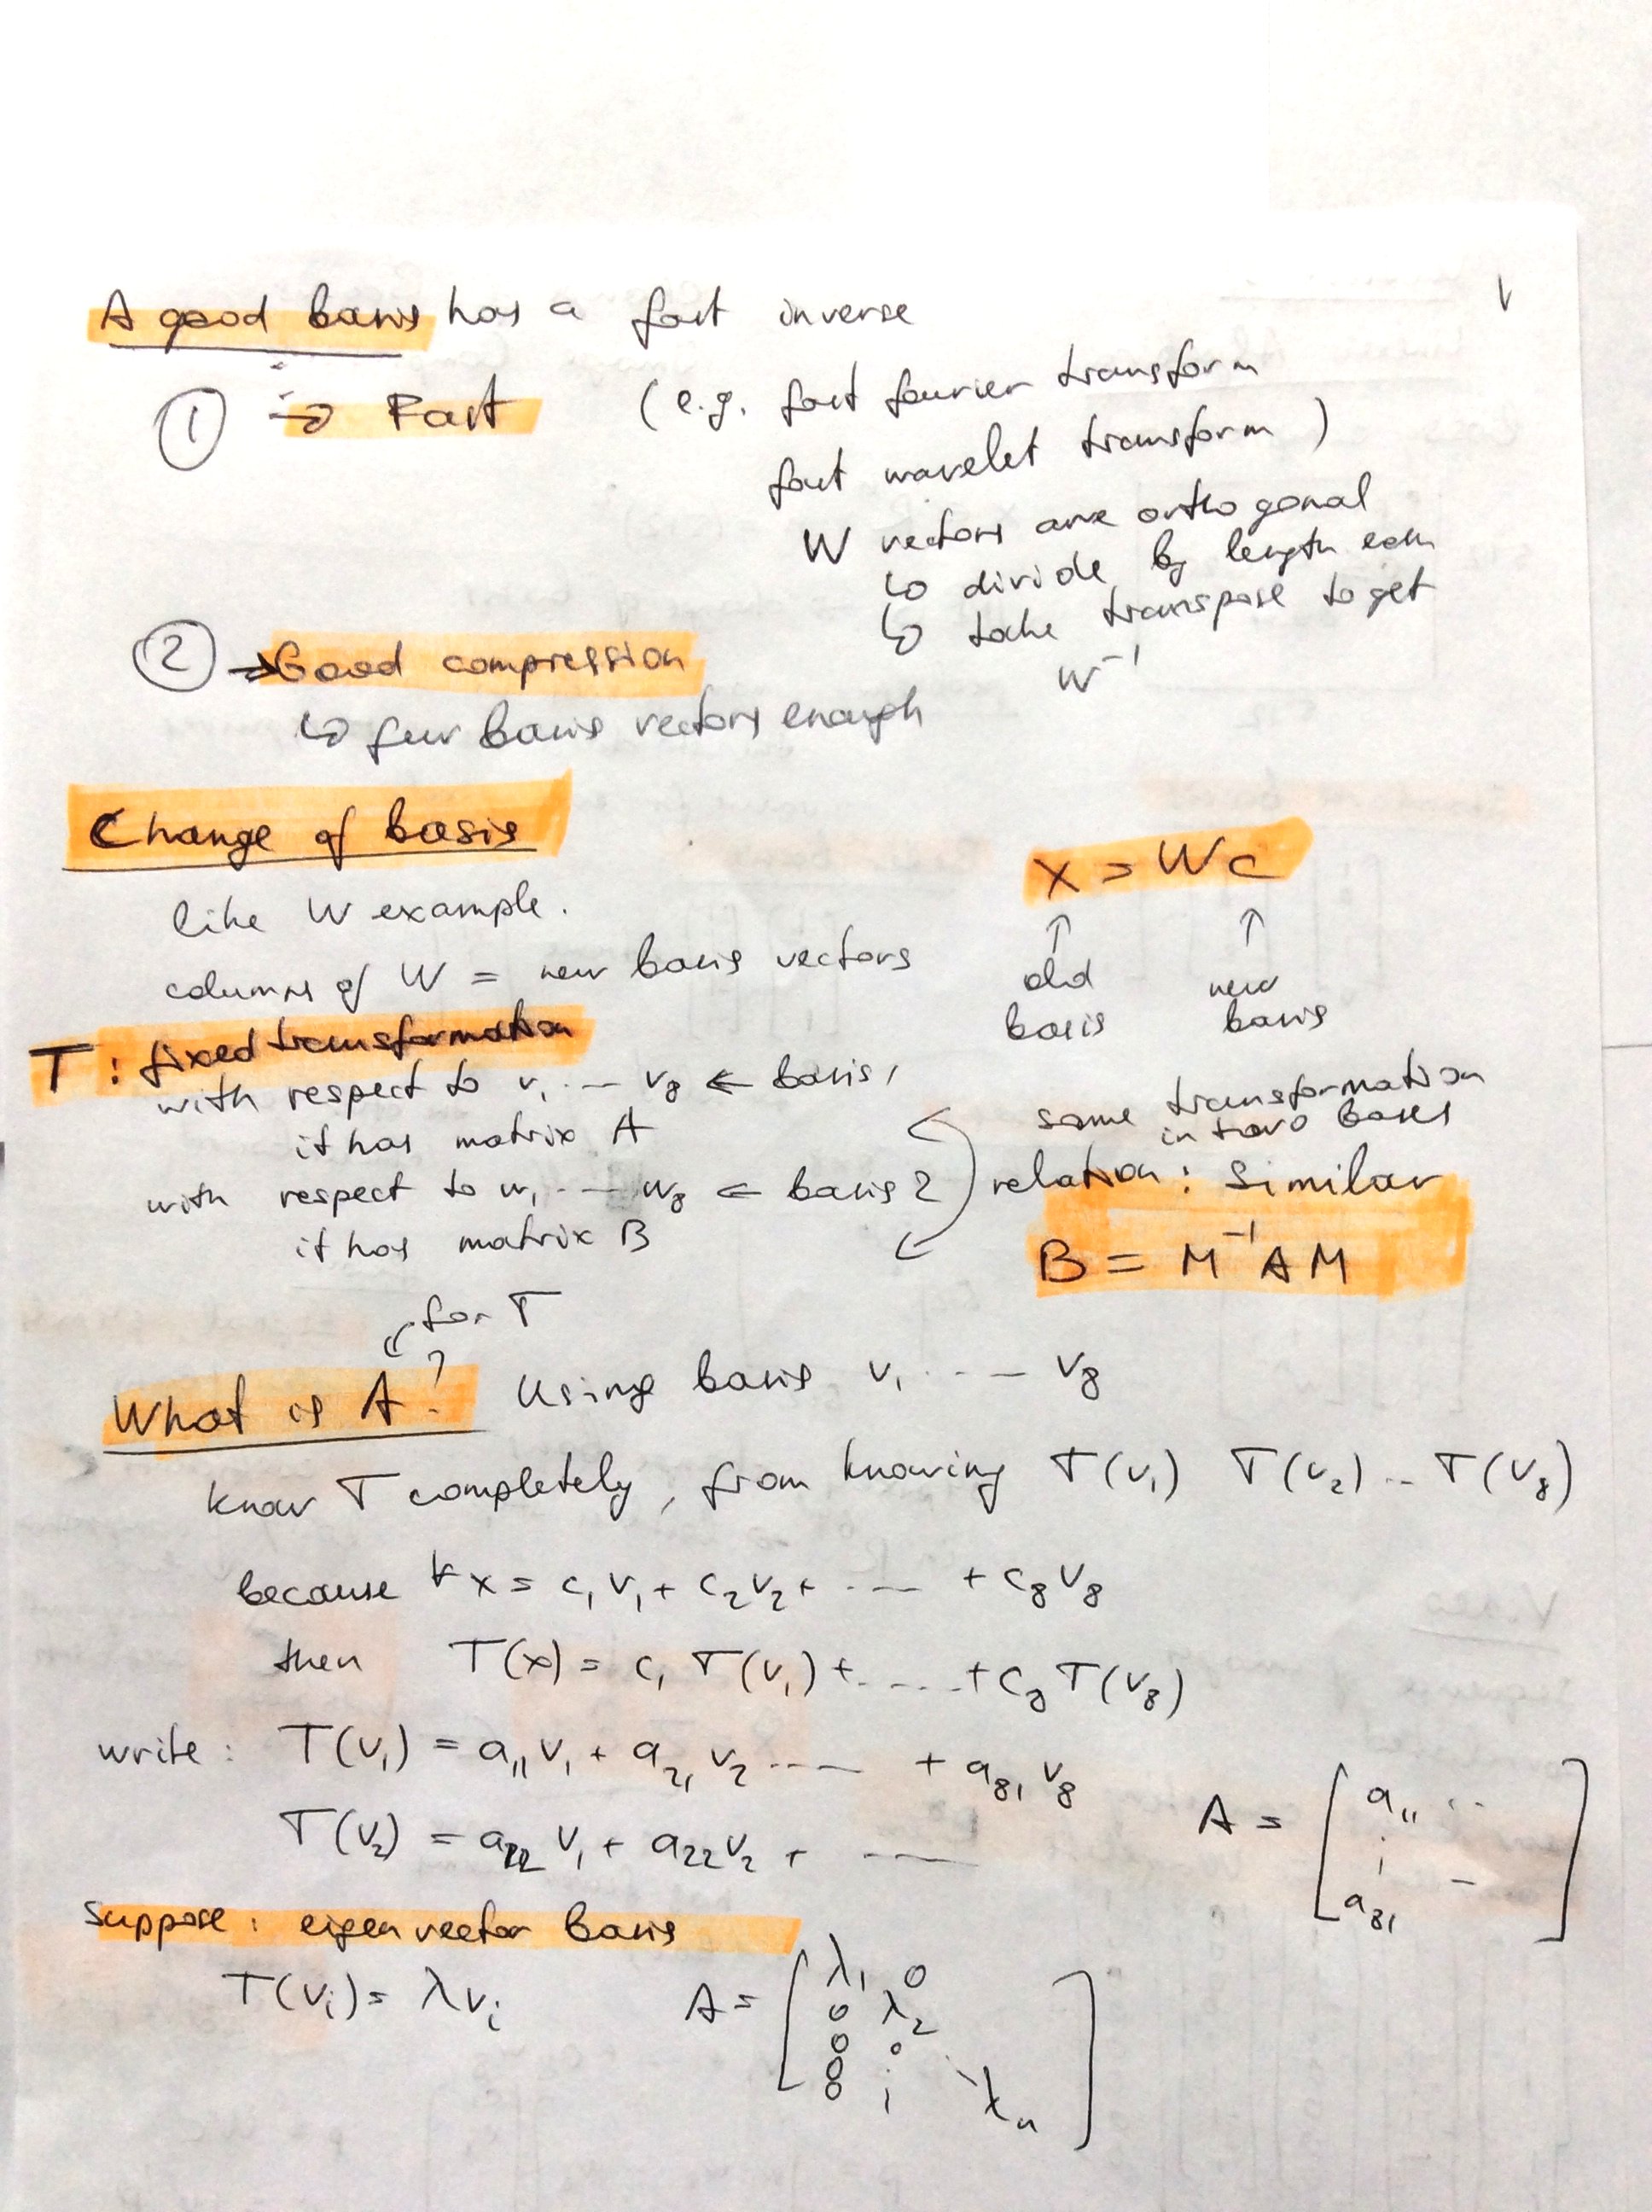 A good basis has a fast inverse
① → Fast (e.g. fast fourier transform
fast wavelet transform)
W vectors are orthogonal
↳ divide by length each
↳ take transpose to get
W⁻¹
② → Good compression
↳ few basis vectors enough
Change of basis
x = Wc
like W example.
↑ ↑
columns of W = new basis vectors
old basis
new basis
T: fixed transformation
with respect to v₁ ... v₈ ← basis 1
it has matrix A
with respect to w₁ ... w₈ ← basis 2
it has matrix B
same transformation
in two bases
relation: Similar
B = M⁻¹AM
for T
What is A? Using basis v₁ ... v₈
know T completely, from knowing T(v₁) T(v₂) .. T(v₈)
because ∀ x = c₁v₁ + c₂v₂ + ... + c₈v₈
then T(x) = c₁ T(v₁) + ... + c₈ T(v₈)
write: T(v₁) = a₁₁v₁ + a₂₁v₂ ... + a₈₁v₈
T(v₂) = a₁₂v₁ + a₂₂v₂ + ...
A = [ a₁₁ ..
⋮ –
a₈₁ ]
suppose: eigenvector basis
T(vᵢ) = λvᵢ
A = [ λ₁ 0
0 λ₂
0 0
0 ⋮ ⋱
0 λₙ ]